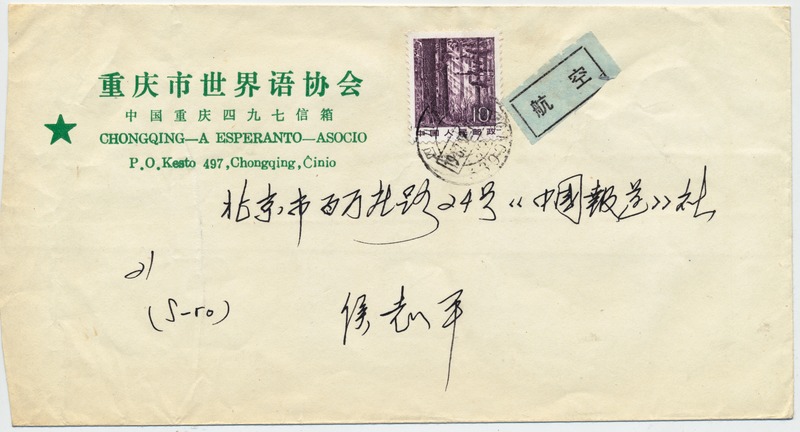 重庆市世界语协会
中国重庆四九七信箱
CHONGQING—A ESPERANTO—ASOCIO
P.O.Kesto 497,Chongqing,Ĉinio
10
中国人民邮政
航空
北京市百万庄路24号《中國報道》社
21
(S-ro)
侯志平